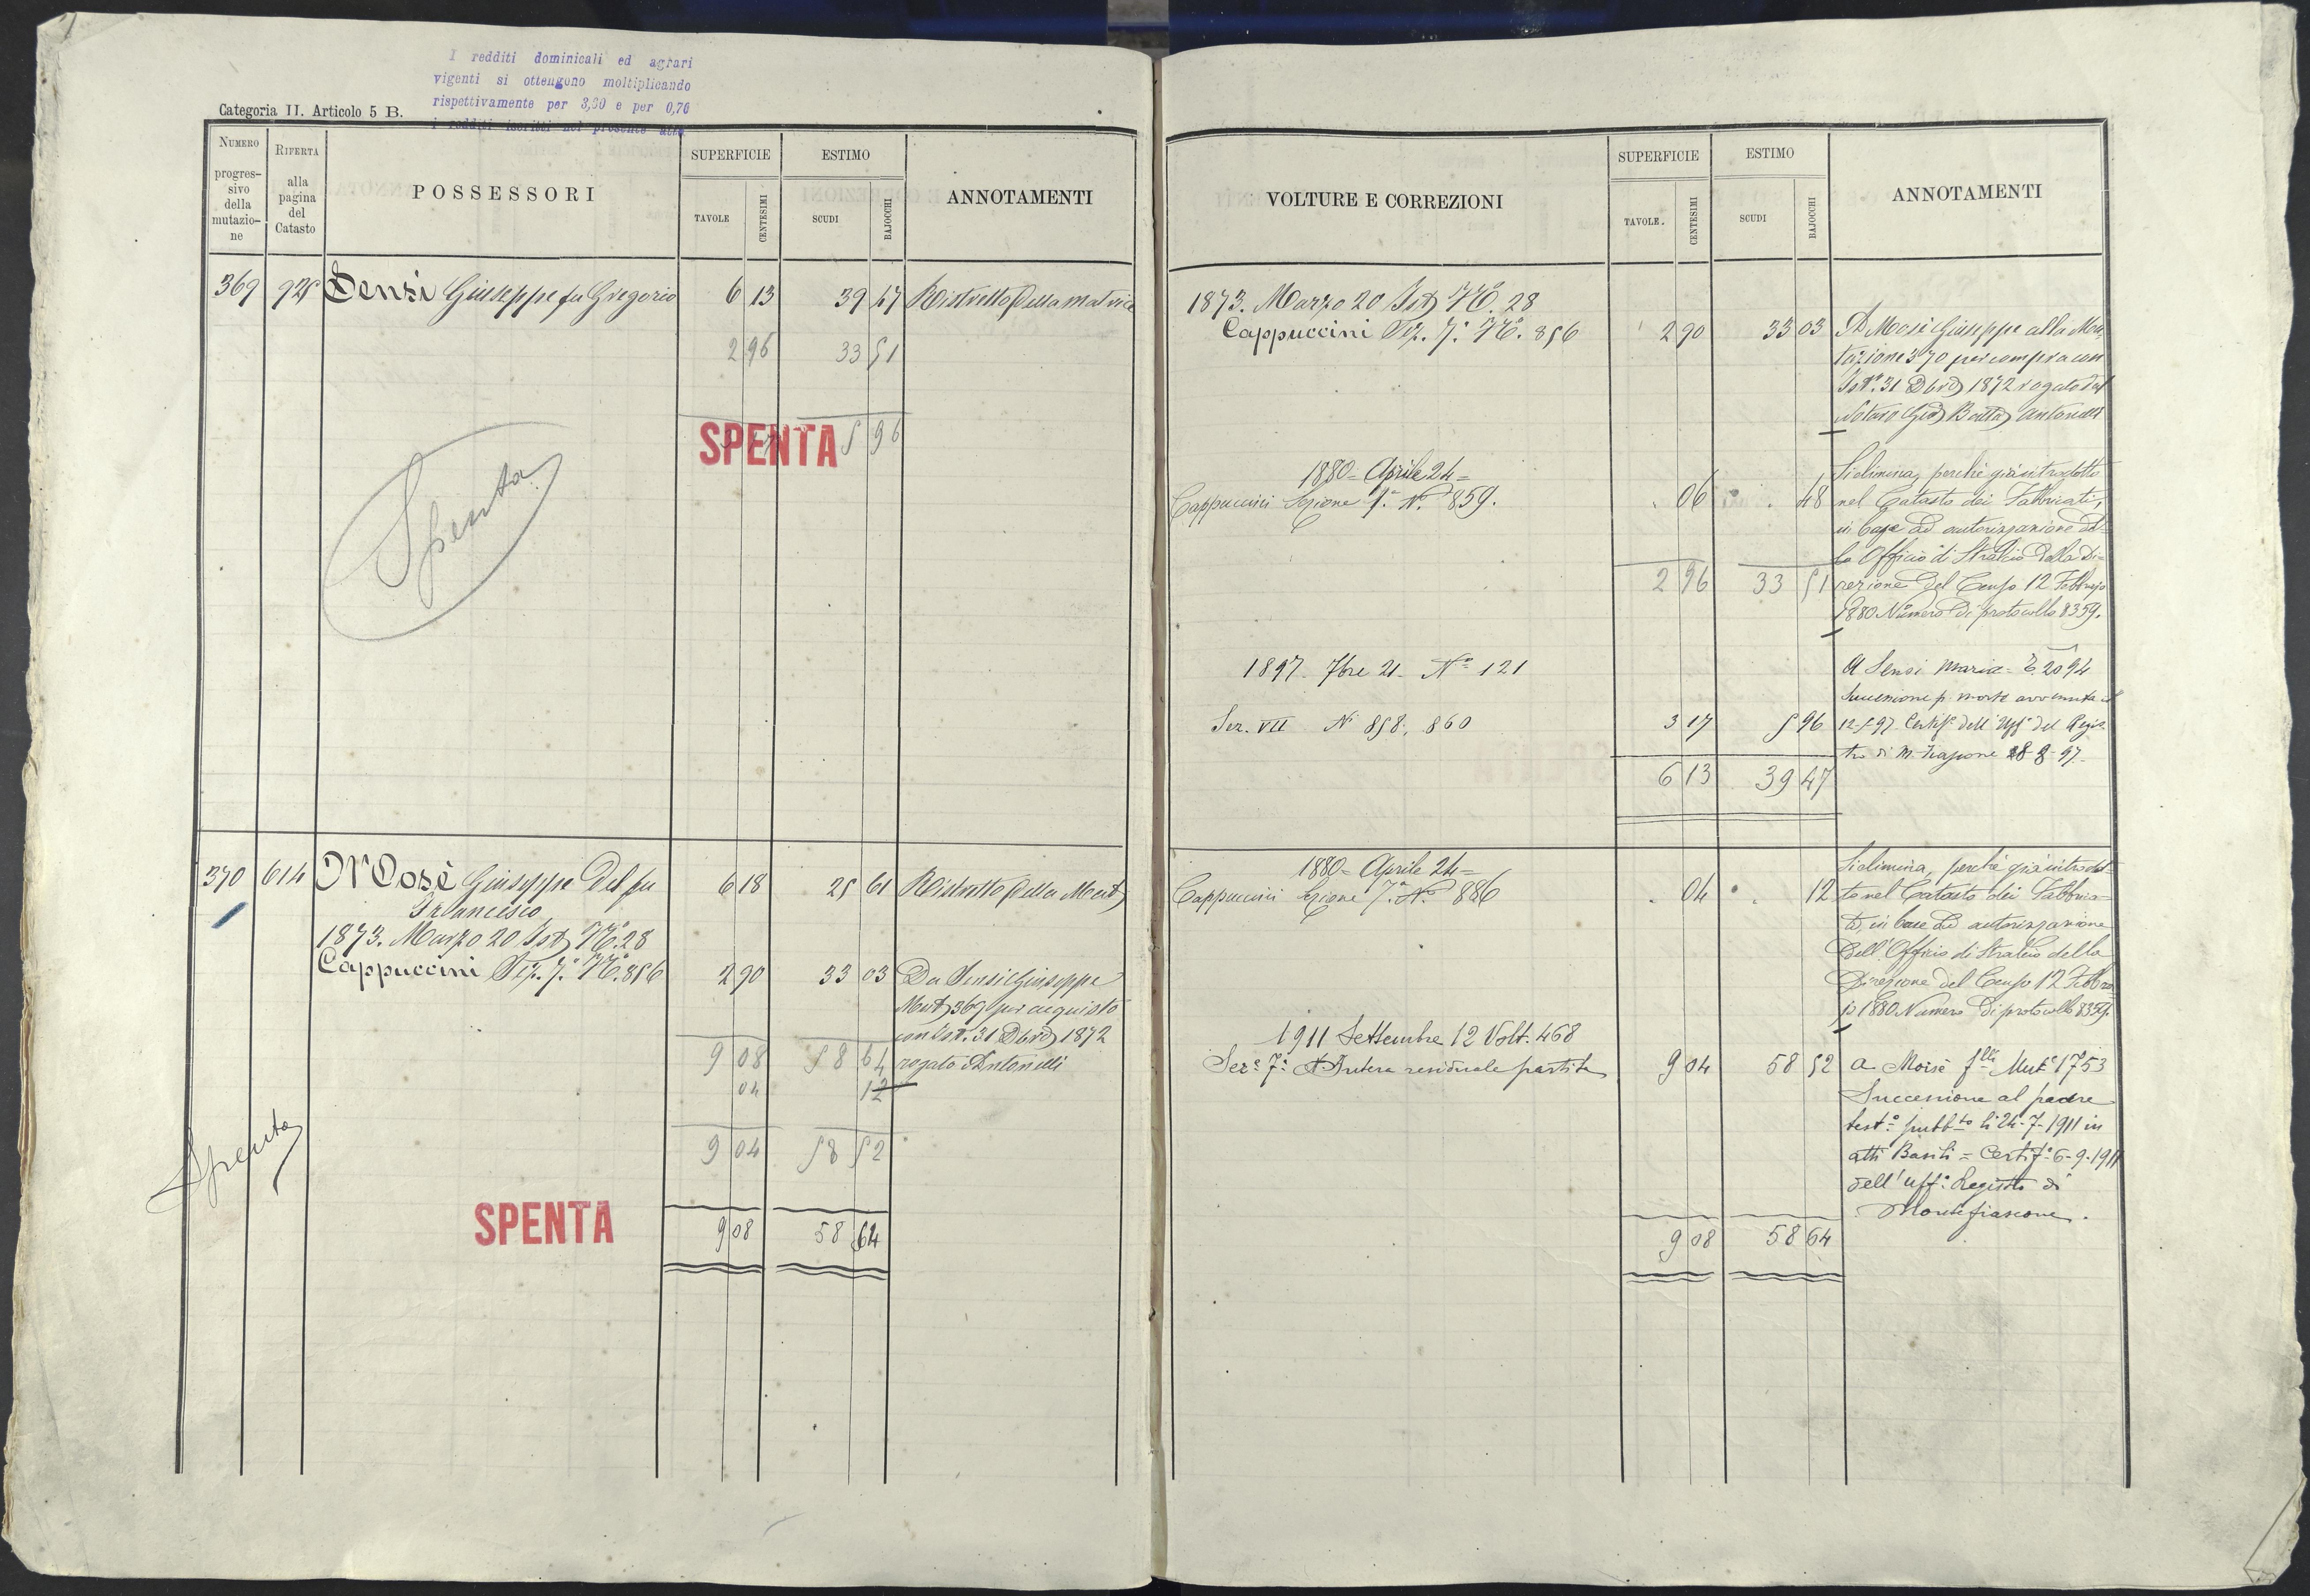 I redditi dominicali ed agrari
vigenti si ottengono moltiplicando
rispettivamente per 3,00 e per 0,70
i redditi iscritti nel presente atto
Categoria II. Articolo 5 B.
NUMERO progressivo della mutazione
RIFERTA alla pagina del Catasto
POSSESSORI
SUPERFICIE
TAVOLE
CENTESIMI
ESTIMO
SCUDI
BAJOCCHI
ANNOTAMENTI
369 925 Sensi Giuseppe fu Gregorio 6 13 39 47 Ristretto della matrice
2 96 33 51
SPENTA 5 96
Spenta
370 614 Mosè Giuseppe del fu 6 18 25 61 Ristretto della Mat
Francesco
1873. Marzo 20 Ist N.° 28
Cappuccini Sez. 7.ª N.° 856 2 90 33 03 Da Sensi Giuseppe
Mut 369 per acquisto
con Ist. 31 Dbre 1872
9 08 58 64 rogato Antonelli
04 12
9 04 58 52
Spenta
SPENTA
9 08 58 64
VOLTURE E CORREZIONI
SUPERFICIE
TAVOLE.
CENTESIMI
ESTIMO
SCUDI
BAJOCCHI
ANNOTAMENTI
1873. Marzo 20 Ist N.° 28
Cappuccini Sez. 7.ª N.° 856 2 90 33 03 A Mosè Giuseppe alla Mu-
tazione 370 per compra con
Ist.° 31 Dbre 1872 rogato dal
Notaro Gio Batta Antonelli
1880 = Aprile 24 =
Cappuccini Sezione 7.ª N.° 859. . 06 . 48
Si elimina, perchè già introdotto
nel Catasto dei Fabbricati,
in base ad autorizzazione del-
lo Officio di Stralcio della Di-
2 96 33 51 rezione del Censo 12 Febbrajo
1880 Numero di protocollo 8359.
1897. 7bre 21. N° 121
A Sensi Maria = 2094
Successione p. morte avvenuta il
Sez. VII N° 858, 860 3 17 5 96 12-5-97. Certif° dell'Uff° del Regis
tro di M. fiascone 28-8-97.
6 13 39 47
1880 = Aprile 24 =
Cappuccini Sezione 7.ª N.° 886 . 04 . 12
Si elimina, perchè già introdot-
to nel Catasto dei Fabbrica-
ti, in base ad autorizzazione
dell'Officio di Stralcio della
Direzione del Censo 12 Febbra-
jo 1880 Numero di protocollo 8359.
1911 Settembre 12 Volt. 468
Sez.e 7.ª Intera residuale partita 9 04 58 52 a Moisè f.lli Mut.e 1753
Successione al padre
test.° pubb.to li 24-7-1911 in
atti Basili = Certif.° 6-9-1911
dell'Uff.° Registro di
Montefiascone.
9 08 58 64